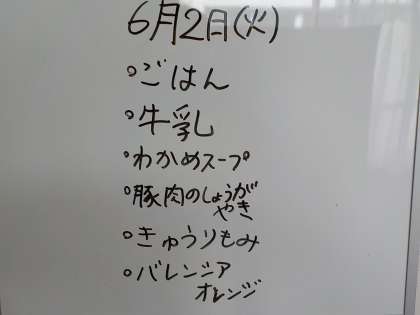 6月2日(火)
°ごはん
°牛乳
°わかめスープ
°豚肉のしょうが
やき
°きゅうりもみ
°バレンシア
オレンジ